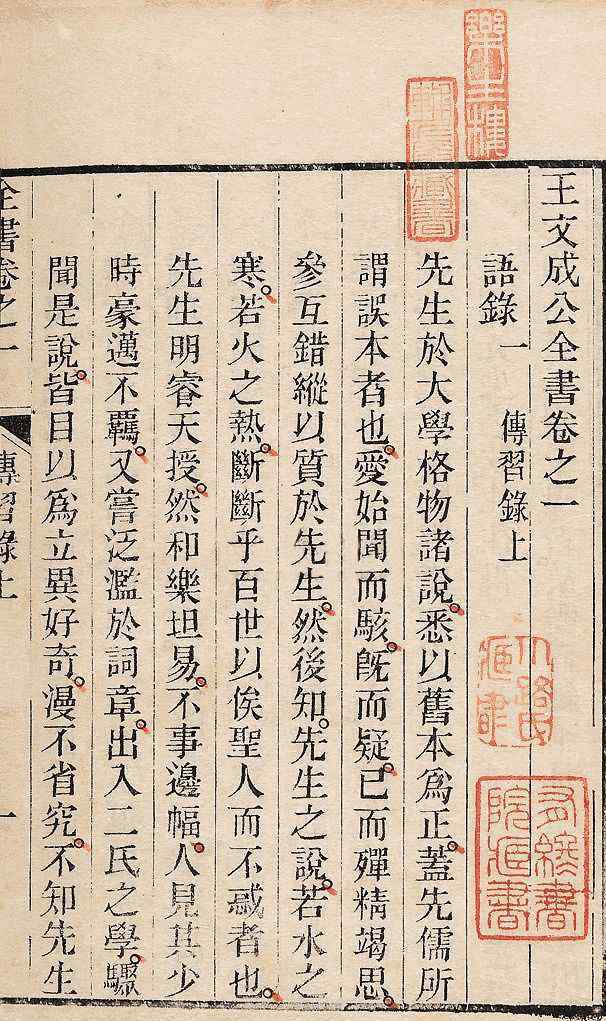 王文成公全書卷之一
語錄一 傳習錄上
先生於大學格物諸說悉以舊本爲正蓋先儒所
謂誤本者也愛始聞而駭旣而疑已而殫精竭思
參互錯縱以質於先生然後知先生之說若水之
寒若火之熱斷斷乎百世以俟聖人而不惑者也
先生明睿天授然和樂坦易不事邊幅人見其少
時豪邁不羈又嘗泛濫於詞章出入二氏之學驟
聞是說皆目以爲立異好奇漫不省究不知先生
全書卷之一 傳習錄上 一
藏書